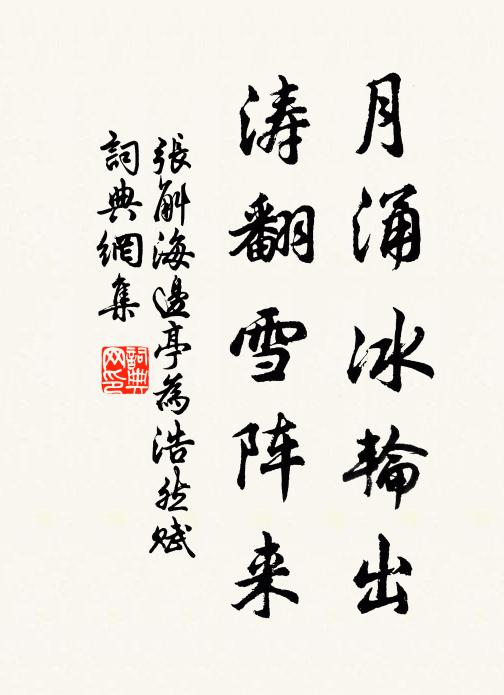 月涌冰輪出
涛翻雪阵来
張斛海邊亭為浩然賦
詞典網集
詞典网印